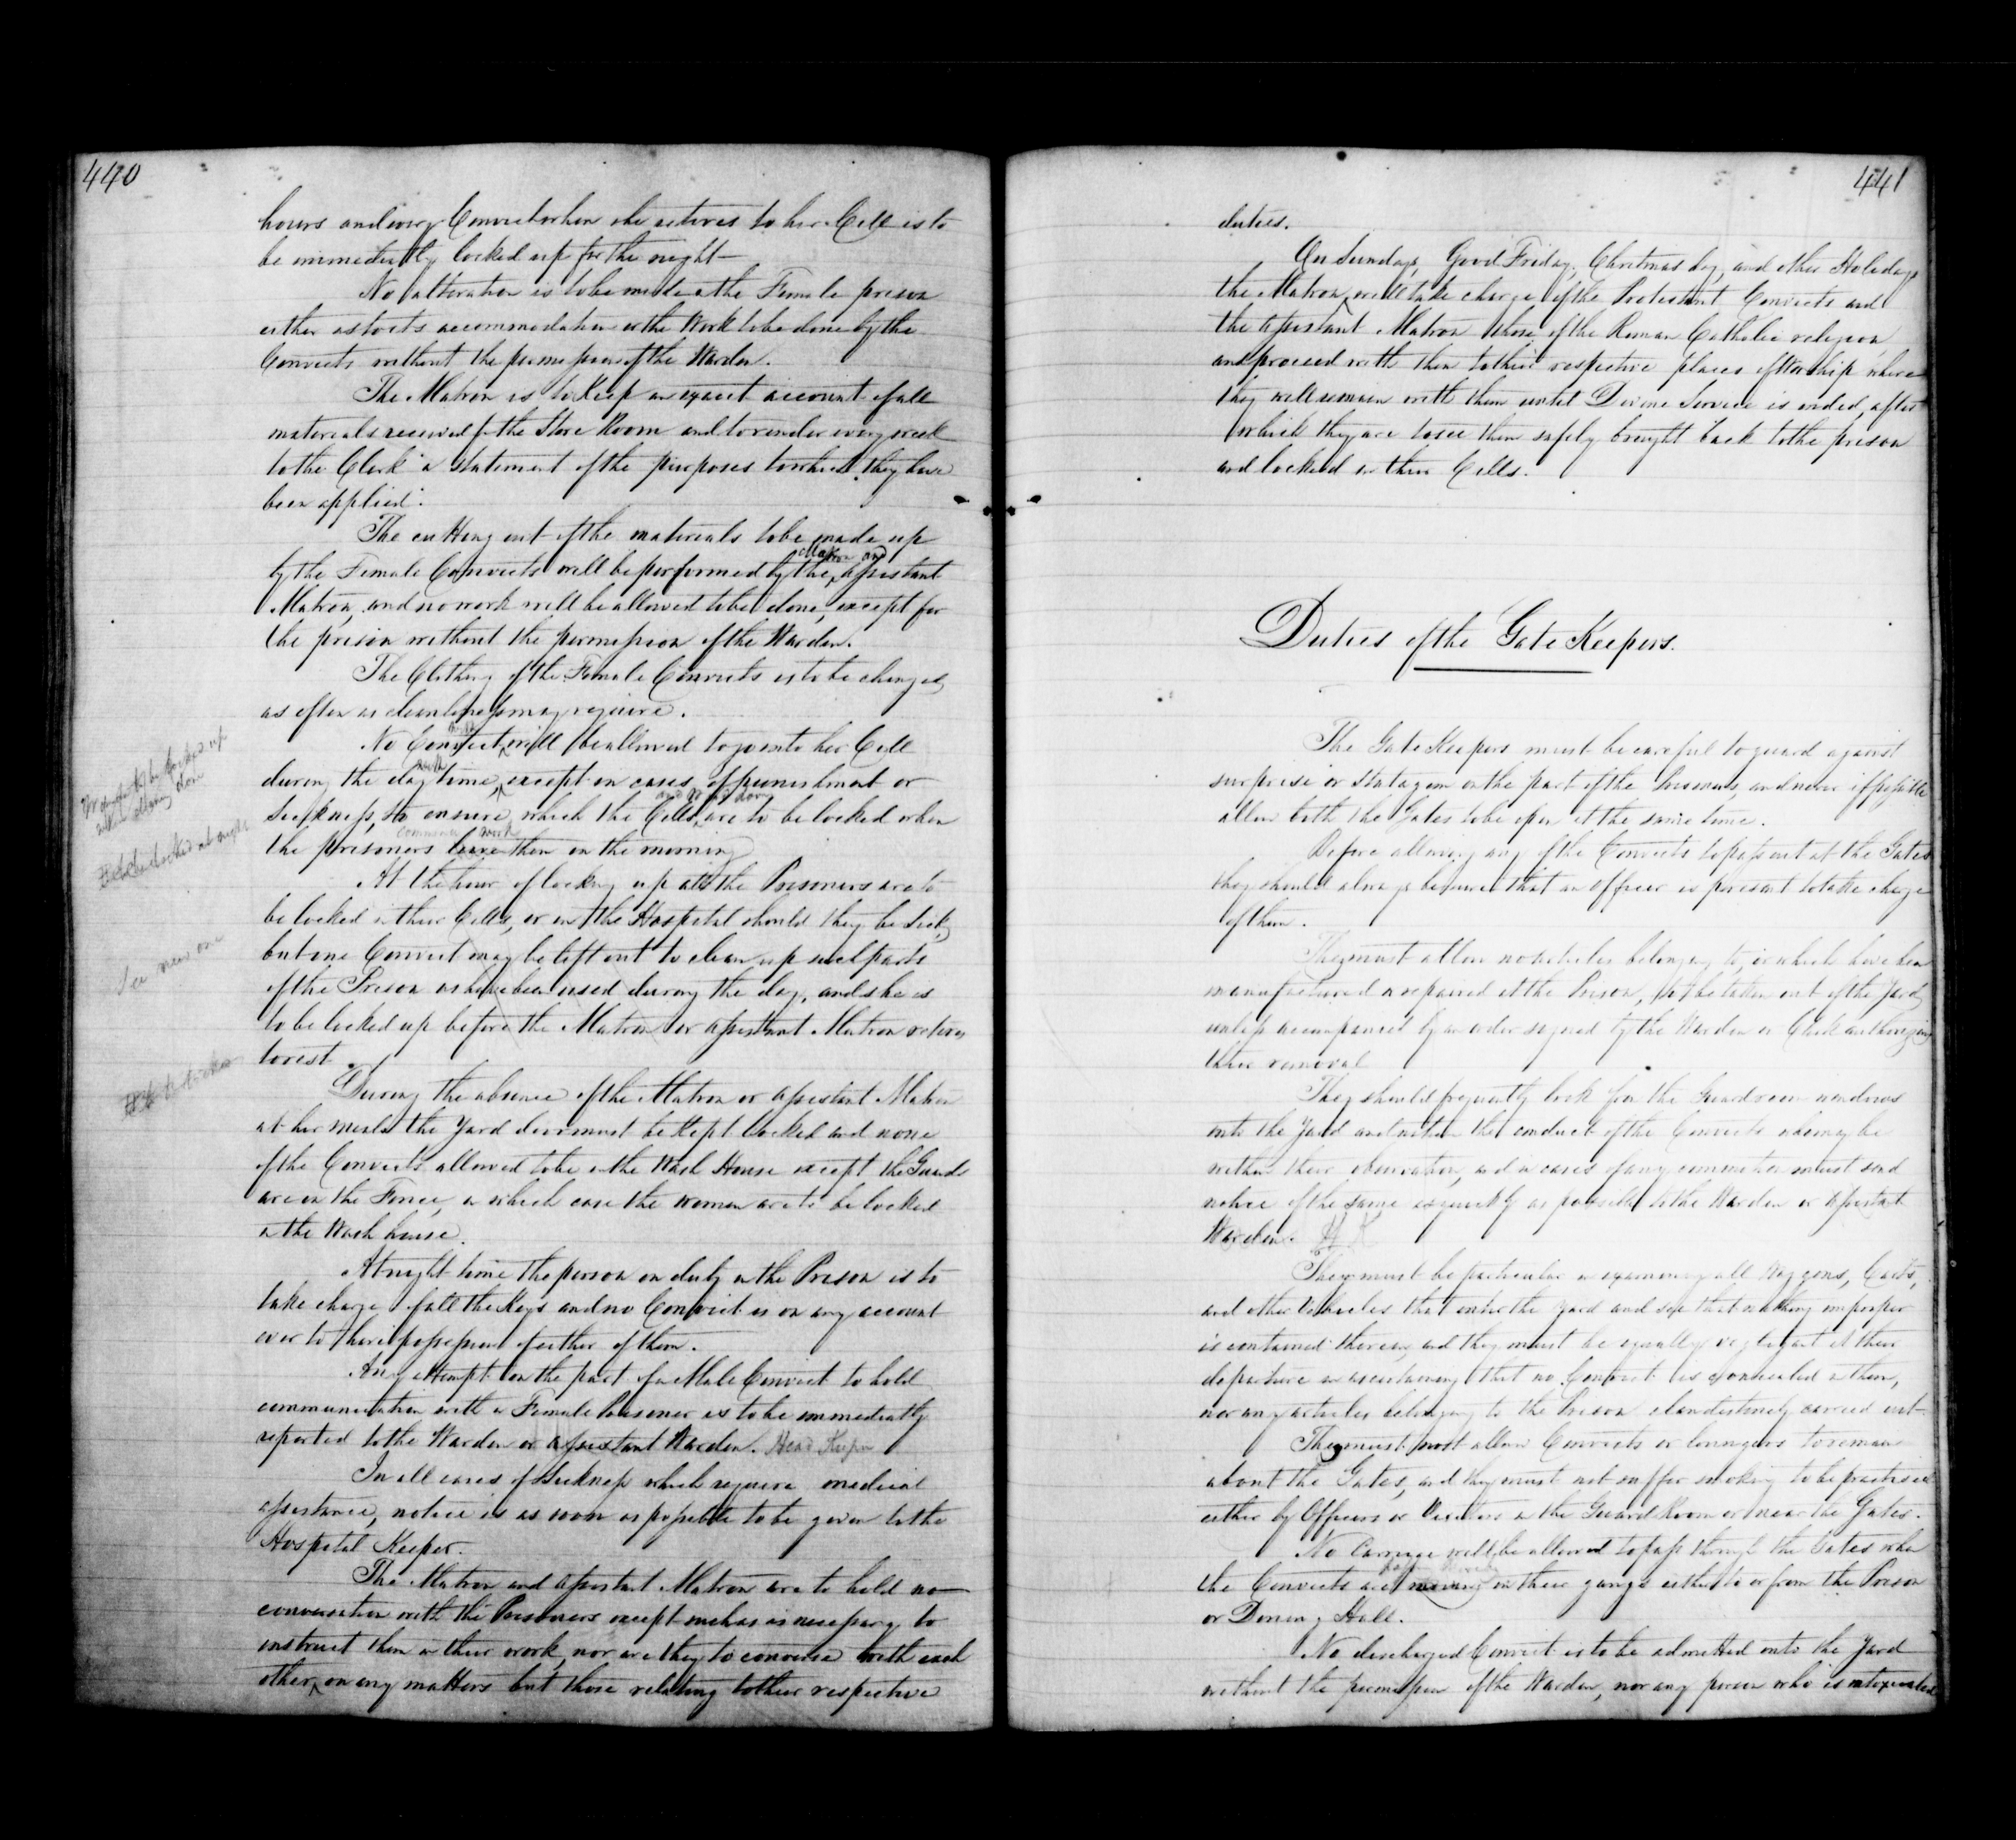 440
hours and every Convict when she retires to her Cell is to
be immediately locked up for the night
No alteration is to be made in the Female prison
either as to its accommodation or the Work to be done by the
Convicts without the permission of the Warden.
The Matron is to keep an exact account of all
materials received from the Store Room and to render every week
to the Clerk a statement of the purposes to which they have
been applied.
The cutting out of the materials to be made up
by the Female Convicts will be performed by the Matron and Assistant
Matron, and no work will be allowed to be done, except for
the prison without the permission of the Warden.
The Clothing of the Female Convicts is to be changed
as often as cleanliness may require.
No Convict will be allowed to go into her Cell
during the day time, except in cases of punishment or
Sickness, to ensure which the Cells and are to be locked when
the prisoners commence work leave them in the morning
At the hour of locking up all the Prisoners are to
be locked in their Cells, or in the Hospital should they be sick,
but one Convict may be left out to clean up such parts
of the Prison as have been used during the day, and she is
to be locked up before the Matron or Assistant Matron retires
to rest.
During the absence of the Matron or Assistant Matron
at her meals the Yard door must be kept locked and none
of the Convicts allowed to be in the Wash House except the Guards
are on the Fence, in which case the women are to be locked
in the Wash house.
At night time the person on duty in the Prison is to
take charge of all the Keys and no Convict is on any account
ever to have possession of either of them.
Any attempt on the part of a Male Convict to hold
communication with a Female Prisoner is to be immediately
reported to the Warden or Assistant Warden. Head Keeper
In all cases of Sickness which require medical
assistance, notice is as soon as possible to be given to the
Hospital Keeper.
The Matron and Assistant Matron are to hold no
conversation with the Prisoners except such as is necessary to
instruct them in their work, nor are they to converse with each
other, on any matters but those relating to their respective
441
duties.
On Sundays, Good Friday, Christmas day, and other Holidays
the Matron will take charge of the Protestant Convicts and
the Assistant Matron those of the Roman Catholic religion,
and proceed with them to their respective places of Worship where
they will remain with them until Divine Service is ended, after
which they are to see them safely brought back to the prison
and locked in their Cells.
Duties of the Gate Keepers.
The Gate Keepers must be careful to guard against
surprise or stratagem on the part of the Prisoners, and never if possible
allow both the Gates to be open at the same time.
Before allowing any of the Convicts to pass out at the Gates
they should always be sure that an officer is present to take charge
of them.
They must allow no vehicles belonging to, or which have been
manufactured or repaired at the Prison, to be taken out of the Yard
unless accompanied by an order signed by the Warden or Clerk authorizing
their removal
They should frequently look from the Guard room windows
into the Yard and notice the conduct of the Convicts who may be
within their observation, and in cases of any commotion must send
notice of the same as quickly as possible to the Warden or Assistant
Warden. H. K
They must be particular in examining all Waggons, Carts,
and other Vehicles that enter the yard and see that nothing improper
is contained therein, and they must be equally vigilant at their
departure in ascertaining that no Convict is concealed in them,
nor any articles belonging to the Prison clandestinely carried out.
They must not allow Convicts or loungers to remain
about the Gates, and they must not suffer smoking to be practised
either by Officers or Visitors in the Guard Room or near the Gates.
No Carriage will be allowed to pass through the Gates when
the Convicts are moving in their gangs either to or from the Prison
or Dining Hall.
No discharged Convict is to be admitted into the Yard
without the permission of the Warden, nor any person who is intoxicated